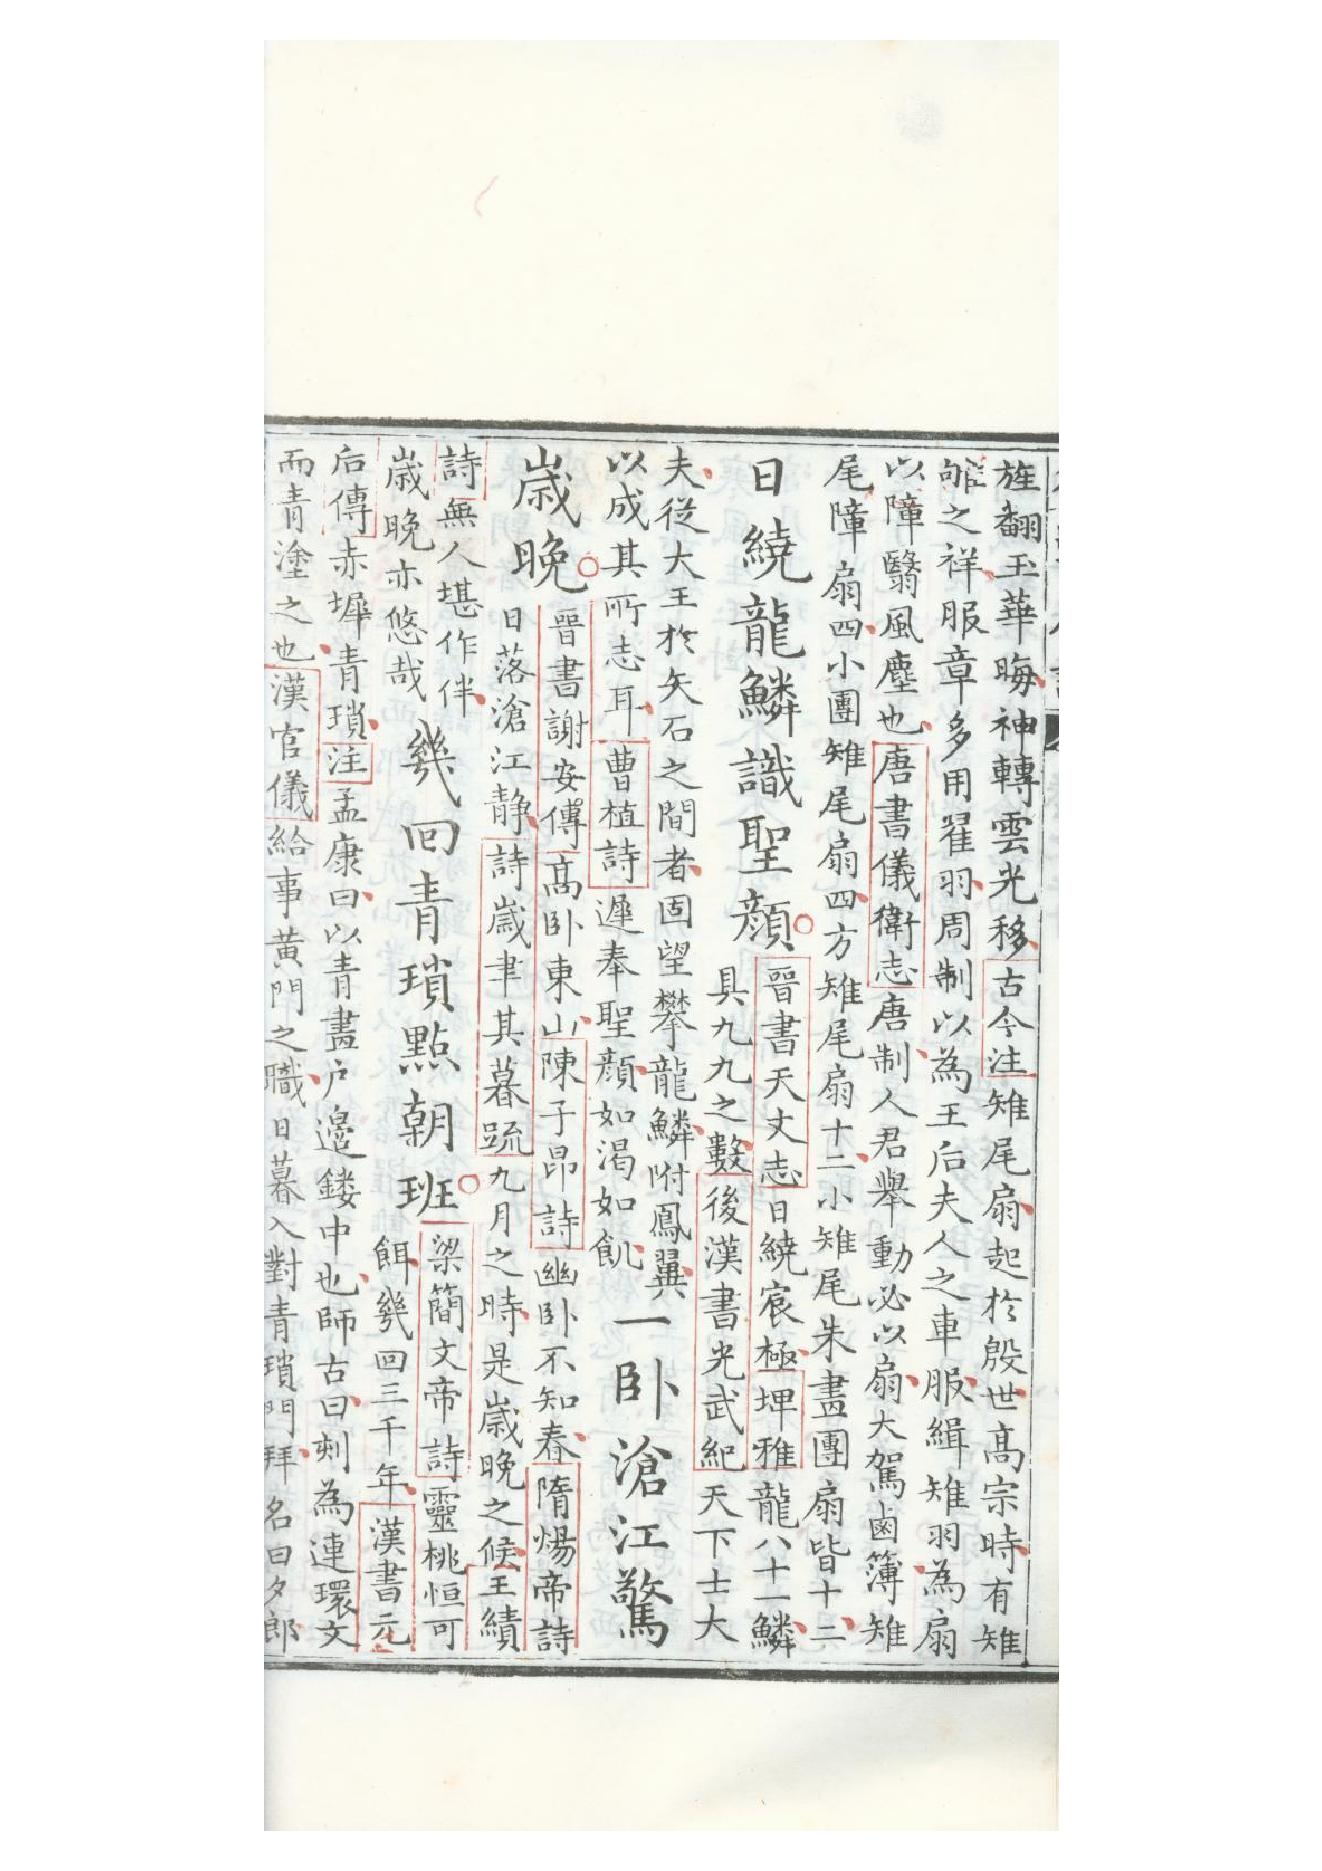 旌翻玉華晦神轉雲光移古今注雉尾扇起於殷世高宗時有雉
雊之祥服章多用翟羽周制以為王后夫人之車服緝雉羽為扇
以障翳風塵也唐書儀衛志唐制人君舉動必以扇大駕鹵簿雉
尾障扇四小團雉尾扇四方雉尾扇十二小雉尾朱畫團扇皆十二
日繞龍鱗識聖顔
晉書天文志日繞宸極埤雅龍八十一鱗
具九九之數後漢書光武紀天下士大
夫從大王於矢石之間者固望攀龍鱗附鳳翼
以成其所志耳曹植詩遲奉聖顔如渴如飢
一卧滄江驚
歲晚
晉書謝安傳高卧東山陳子昂詩幽卧不知春隋煬帝詩
日落滄江静詩歲聿其暮疏九月之時是歲晚之候王績
詩無人堪作伴
歲晚亦悠哉
幾回青瑣點朝班
梁簡文帝詩靈桃恒可
餌幾回三千年漢書元
后傳赤墀青瑣注孟康曰以青畫户邊鏤中也師古曰刻為連環文
而青塗之也漢官儀給事黄門之職日暮入對青瑣門拜名曰夕郎